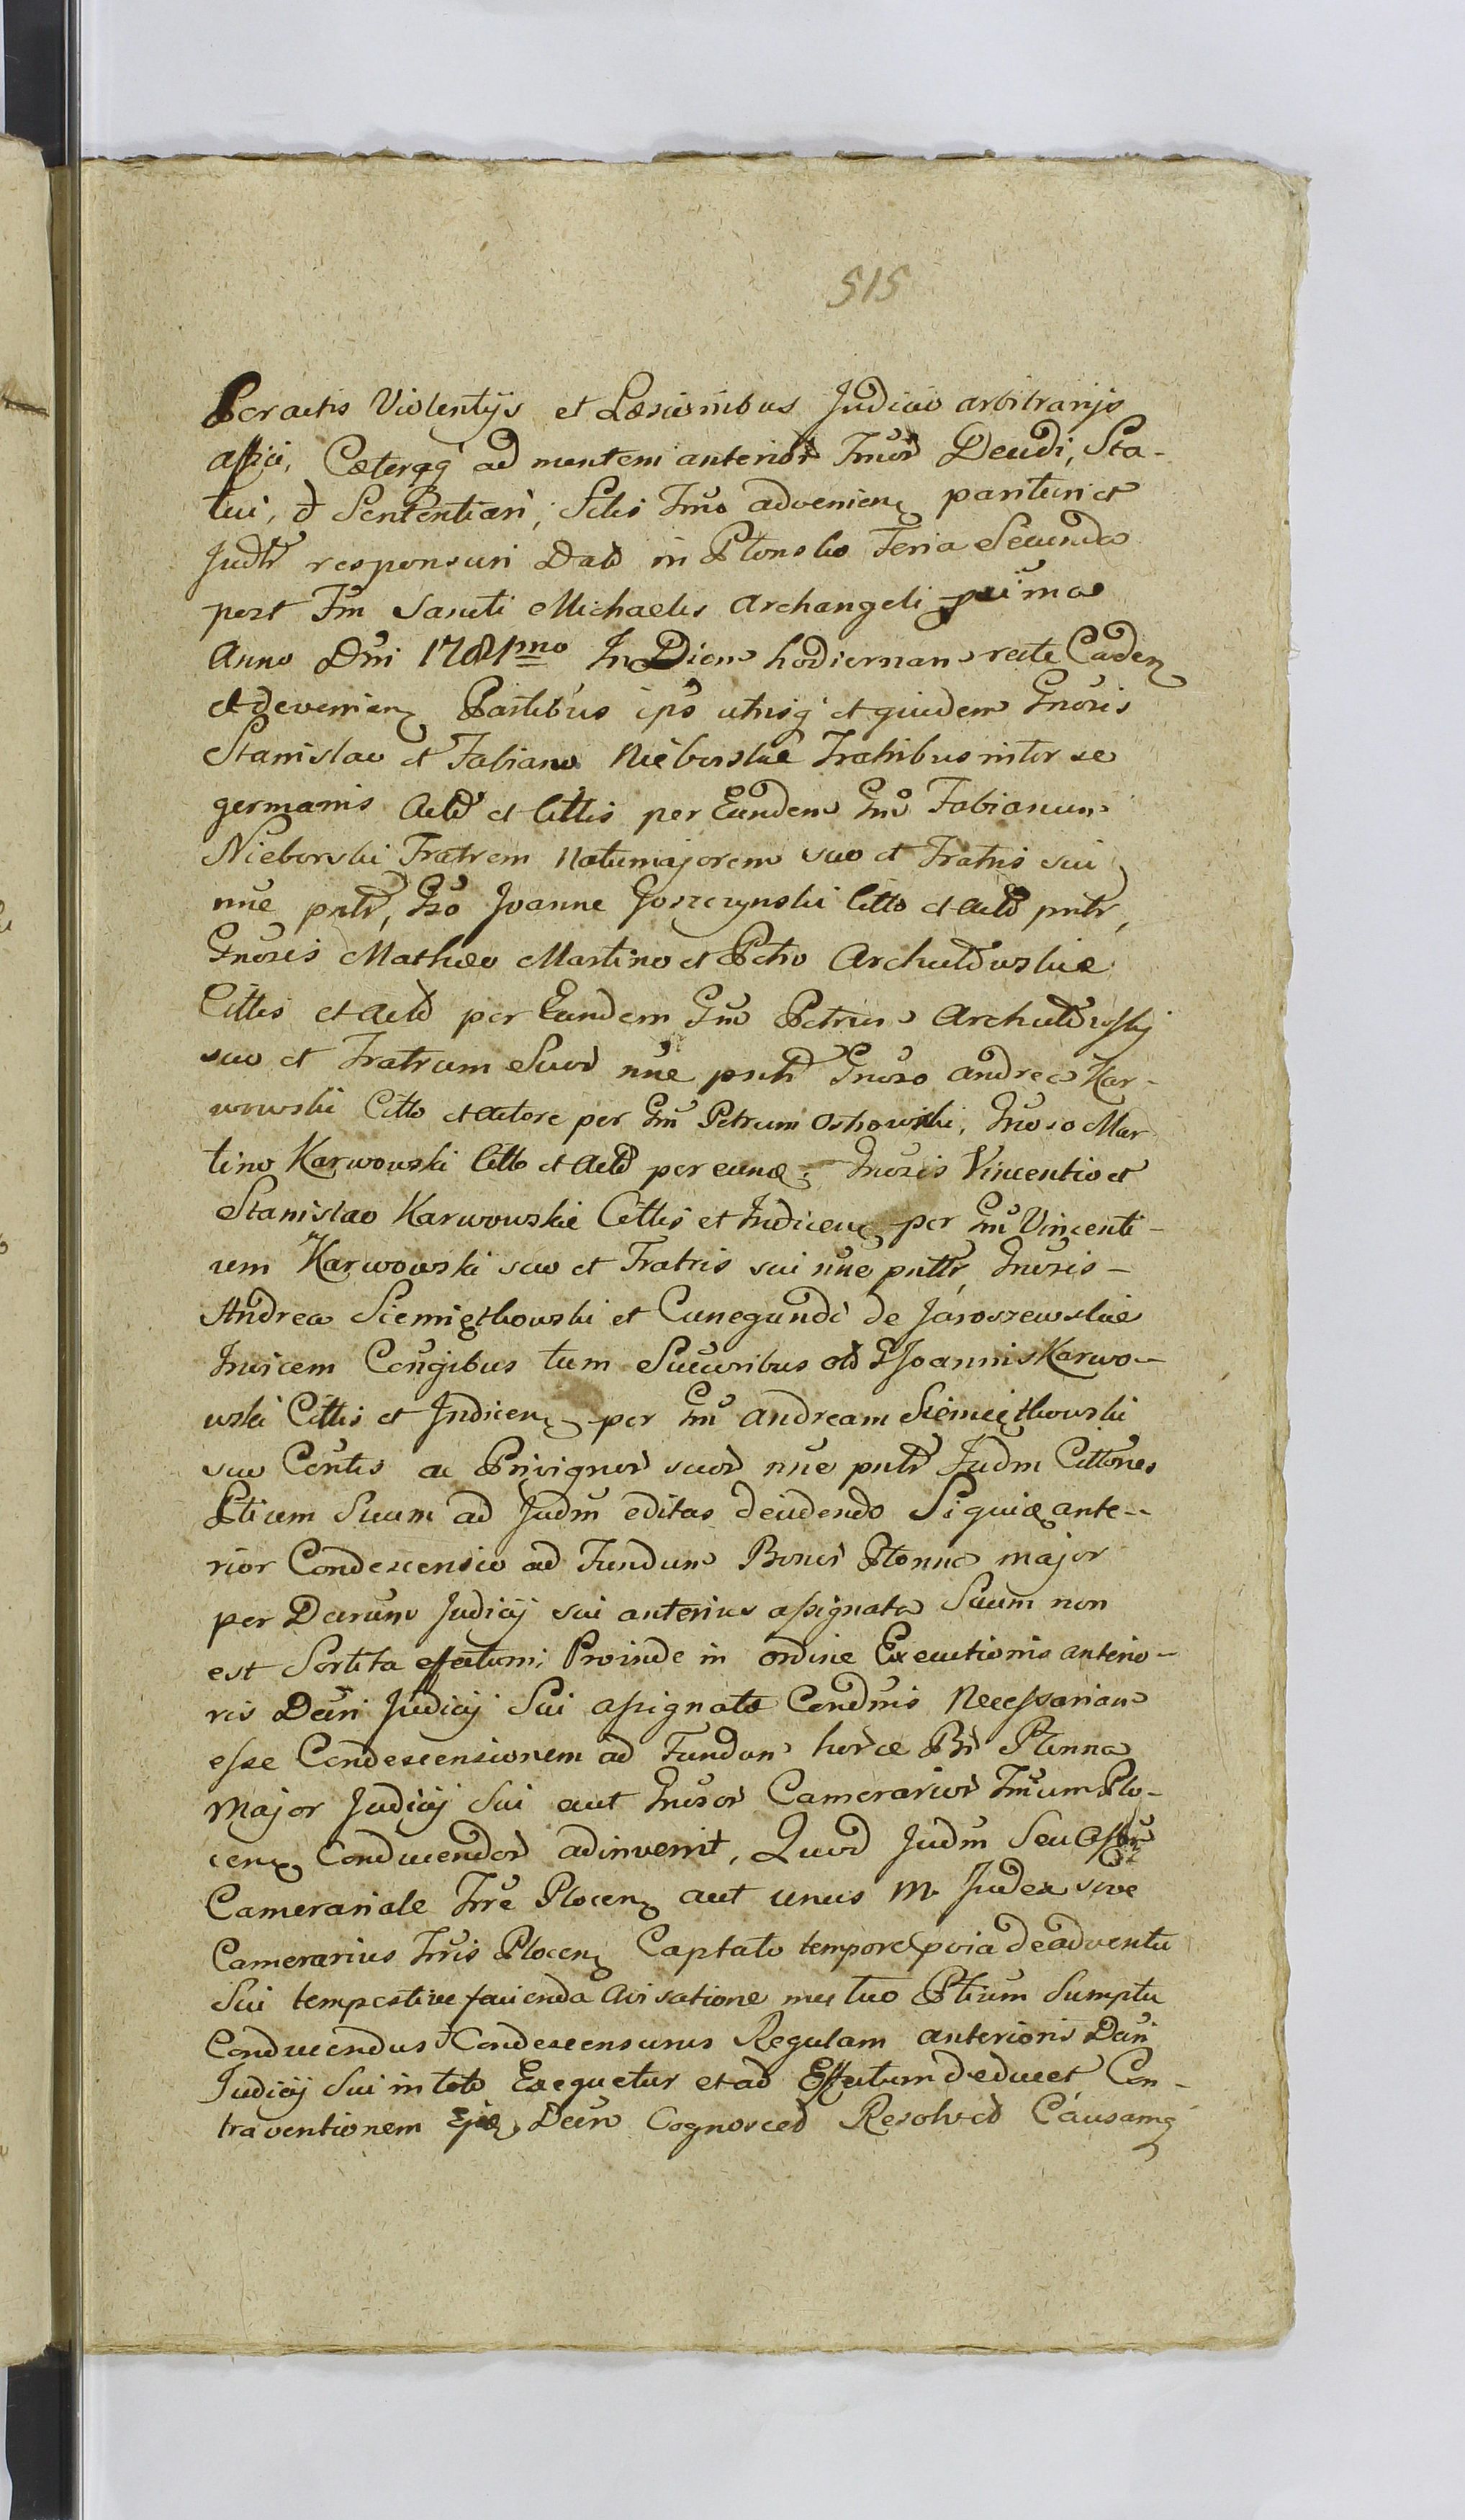 515
Peractis Violentijs et Læsionibus Judicio arbitrarijs
affici, Cæteraq̃ ad mentem anterior Tmōr Decidi, Sta-
tui, & Sententiari, Sitis Tmo advenienȝ parituri et
Judtr responsuri Dat in Płonsko Feria Secunda
post Fm Sancti Michaelis Archangeli proxima
Anno Dni 1781mo In Diem hodiernam recte Cadenȝ
et devenienȝ Partibus ipś utrisq̃ et quidem Gnōsis
Stanislao et Fabiano Nieborskie Fratribus inter se
germanis Actō et Cittis per Eundem Gnō Fabianum
Nieborski Fratrem Natumajorem suo et Fratris sui
nne pntr, Gso Joanne Goszczynski Citto et Actō pntr,
Gnosis Mathæo Martino et Petro Archutowskie
Cittis et Actō per Eundem Gnm Petrum Archutowskj
suo et Fratrum Suor nne pntr Gnoso Andrea Kar-
wowski Citto et Actore per Gnm Petrum Ostrowski, Gnoso Mar
tino Karwowski Citto et Actō per eundȝ; Gnosis Vincentio et
Stanislao Karwowskie Cittis et Indicenȝ per Gnm Vincenti-
um Karwowski suo et Fratris sui nne pntr, Gnosis -
Andrea Siemiętkowski et Cunegundi de Jaroszewskie
Invicem Congibus tum Succoribus ol G Joannis Karwo-
wski Cittis et Indicenȝ per Gnm Andream Siemiętkowski
suo Contis ac Privignor suor nne pntr Judm Cittones
Ptium Suum ad Judm editas decidendo Siquidȝ ante-
rior Condescensio ad Fundum Bonor Płonna major
per Decrum Judicij sui anterius assignata Suum non
est Sortita effectum; Proinde in ordine Executionis anterio-
ris Decri Judicij Sui assignatæ Condnis Necessariam
esse Condescensionem ad Fundum horce Br Płonna
Major Judicij Sui aut Gnosor Camerarior Trrum Plo-
cenȝ Conducendor adinvenit, Quod Judm Seu Offm
Cameranale Trre Plocenȝ aut unus M. Judex sive
Camerarius Trris Plocenȝ Captato tempore pvia de adventu
Sui tempestive facienda Avisatione mutuo Ptium Sumptu
Conducendus & Condescensurus Regulam anterioris Decri
Judicij Sui in toto Exequetur et ad Effectum deducet Con-
traventionem Decro Cognoscet Resolvet Causamq̃